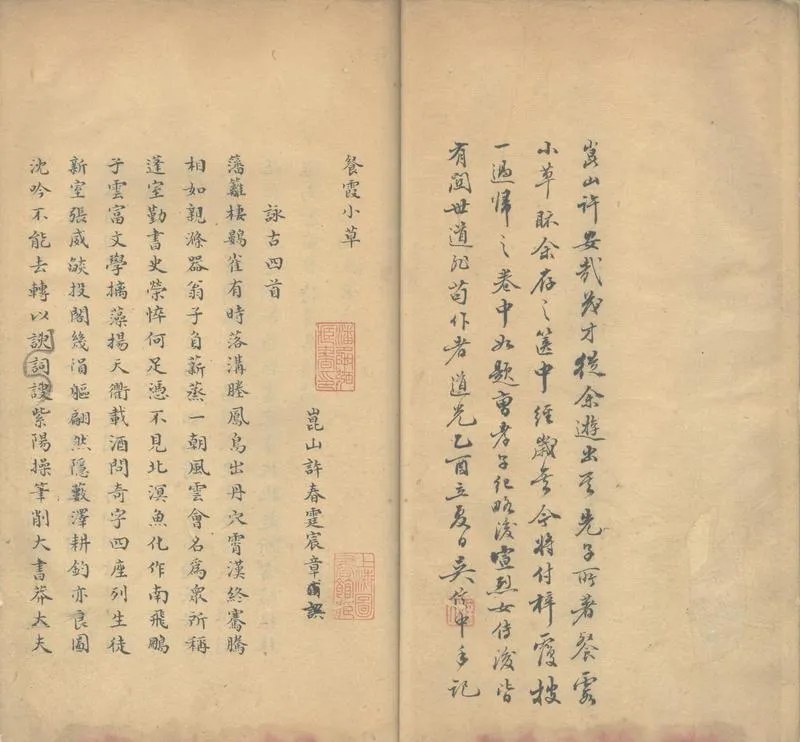 崑山許安哉茂才從余遊出其先子所著餐霞
小草眎余存之篋中經歲矣今將付梓覆校
一過歸之卷中如題曹孝子紀略後宣烈女傳後皆
有關世道非苟作者道光乙酉立夏日吳信中手記
餐霞小草
崑山許春霆宸章甫譔
詠古四首
藩蘺棲鷃雀有時落溝塍鳳鳥出丹穴霄漢終騫騰
相如親滌器翁子自薪蒸一朝風雲會名爲衆所稱
蓬室勤書史榮悴何足憑不見北溟魚化作南飛鵬
子雲富文學摛藻揚天衢載酒問奇字四座列生徒
新室張威燄投閣幾涓軀翩然隱藪澤耕釣亦良圖
沈吟不能去轉以諛詞謏紫陽操筆削大書莽大夫
上海圖書館藏